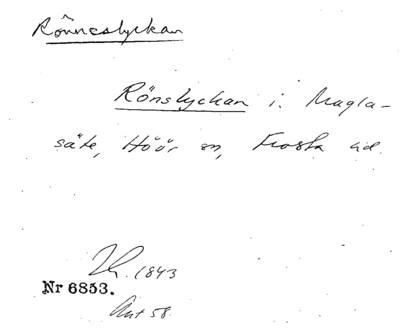 Rönneslyckan
Rönslyckan i Magla-
säte, Höör sn, Frosta hd.
1843
Nr 6853.
Ant 58.